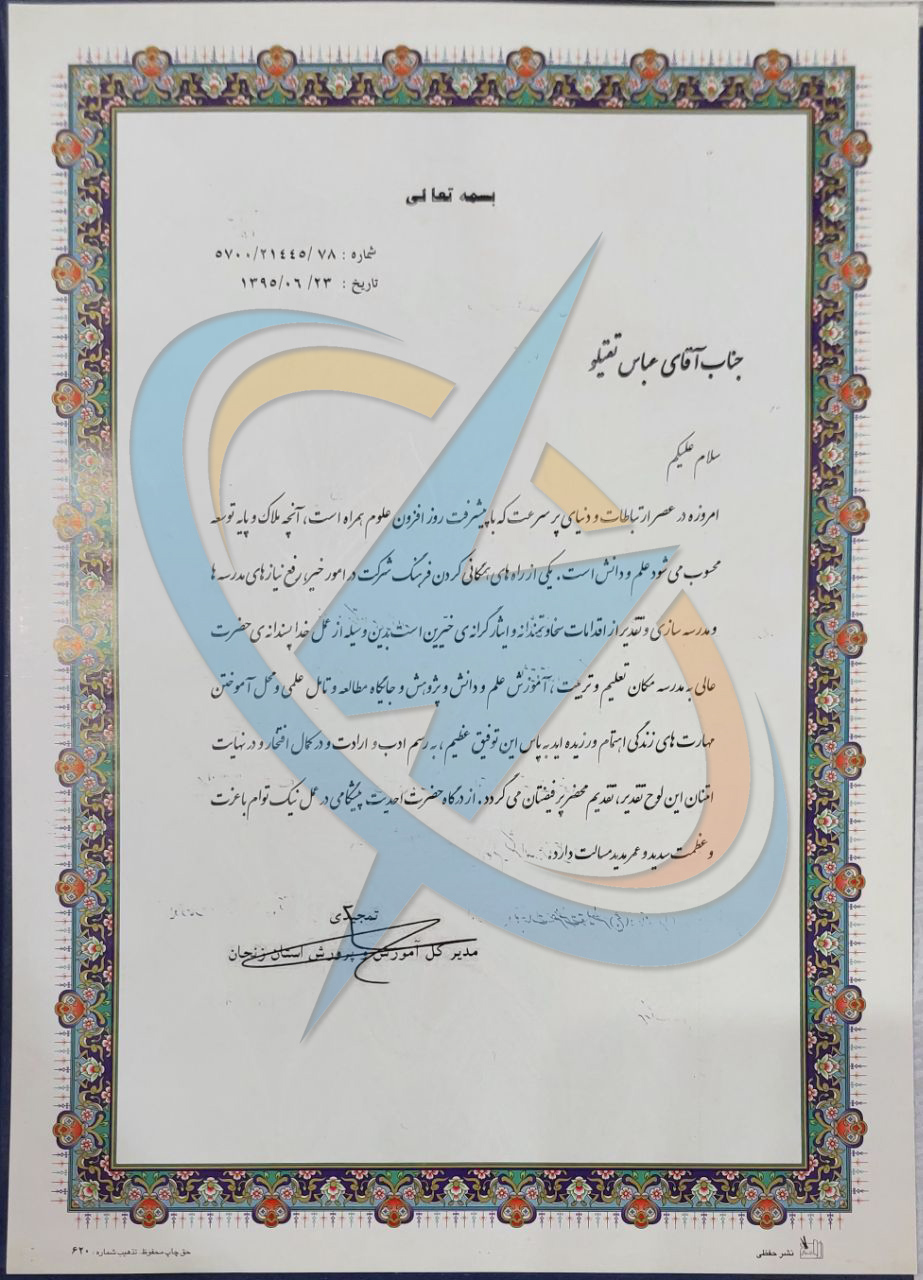 بسمه تعالی
شماره : ۵۷۰۰/۲۱٤٤۵/۷۸
تاریخ : ۱۳۹۵/۰٦/۲۳
جناب آقای عباس تقیلو
سلام علیکم
امروزه در عصر ارتباطات و دنیای پر سرعت که با پیشرفت روز افزون علوم همراه است، آنچه ملاک و پایه توسعه
محسوب می شود علم و دانش است. یکی از راه های همگانی کردن فرهنگ شرکت در امور خیر، رفع نیازهای مدرسه ها
و مدرسه سازی و تقدیر از اقدامات سخاوتمندانه و ایثار گرانه ی خیّرین است بدین وسیله از عمل خدا پسندانه ی حضرت
عالی به مدرسه مکان تعلیم و تربیت ، آموزش علم و دانش و پژوهش و جایگاه مطالعه و تامل علمی و محل آموختن
مهارت های زندگی اهتمام ورزیده اید به پاس این توفیق عظیم ، به رسم ادب و ارادت و در کمال افتخار و در نهایت
امتنان این لوح تقدیر، تقدیم محضر پر فیضتان می گردد . از درگاه حضرت احدیت پیشگامی در عمل نیک توام با عزت
و عظمت سدید و عمر مدید مسالت دارد.
تمجیدی
مدیر کل آموزش و پرورش استان زنجان
نشر حفظی
حق چاپ محفوظ. تذهیب شماره : ۶۲۰